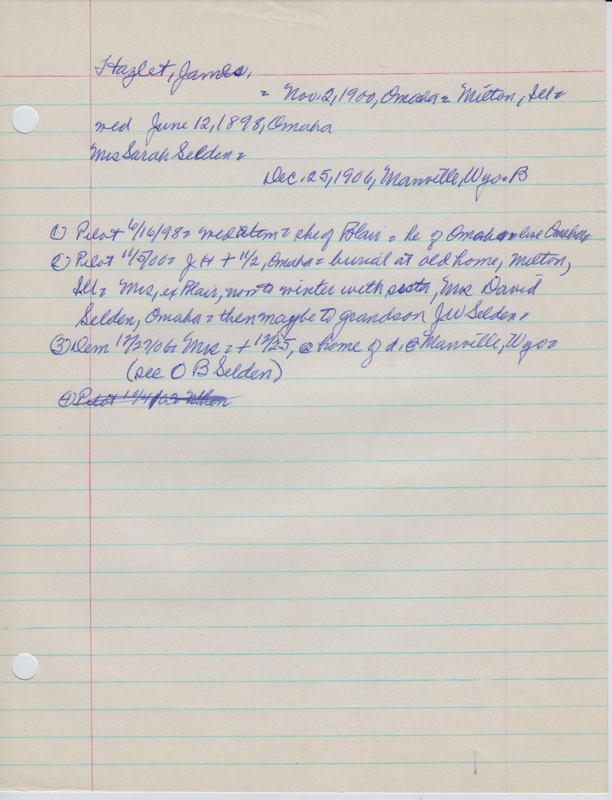 Hazlet, James,
= Nov. 2, 1900, Omaha = Milton, Ill =
wed June 12, 1898, Omaha
Mrs Sarah Selden =
Dec. 25, 1906, Manville, Wyo = B
① Pilot 6/16/98 = wed item = she of Blair = he of Omaha = live Omaha =
② Pilot 11/5/00 = JH + 11/2, Omaha = burial at old home, Milton,
Ill = Mrs, ex Blair, now to winter with Mrs David
Selden, Omaha = then maybe to grandson JW Selden =
③ Dem 12/27/06 = Mrs = + 12/25, @ home of d. @ Manville, Wyo =
(see O B Selden)
④ Pilot